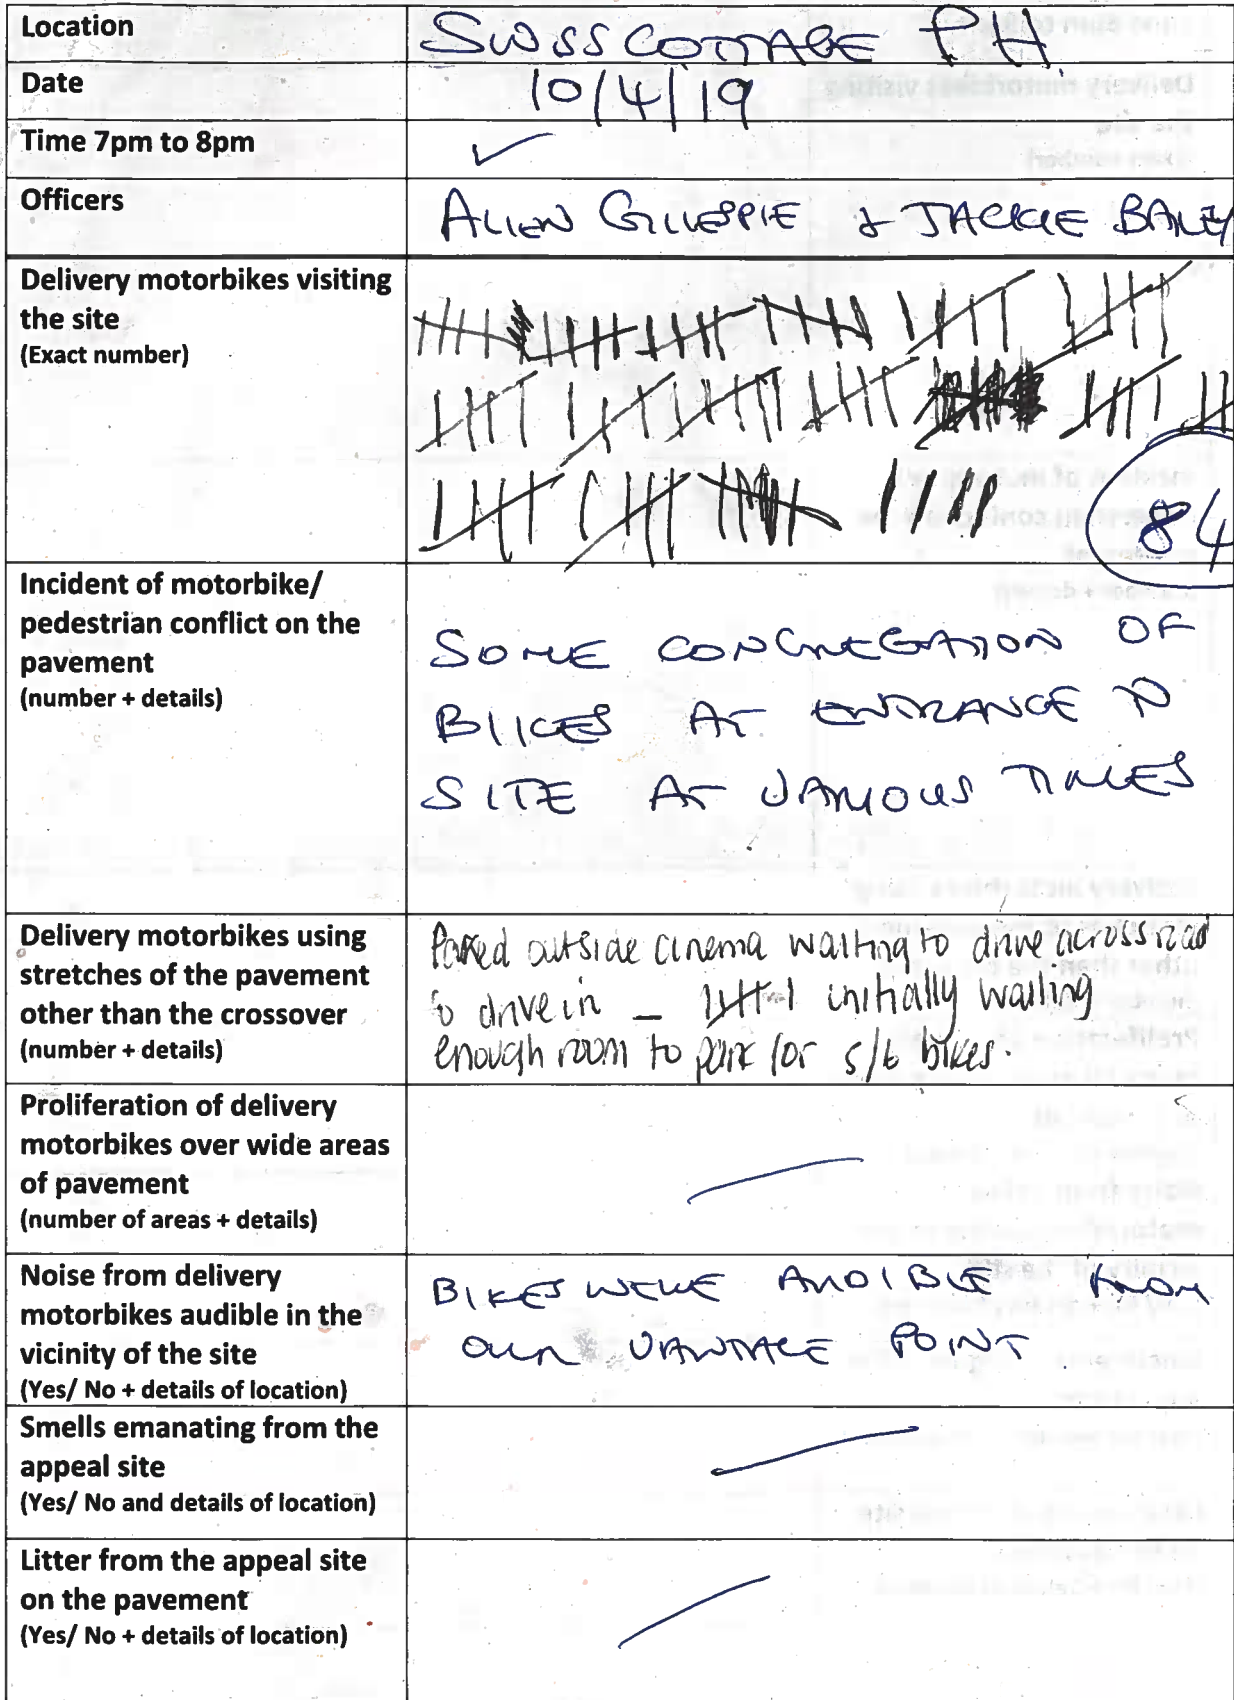 Location
SWISS COTTAGE PH
Date
10/4/19
Time 7pm to 8pm
✓
Officers
ALLEN GILLESPIE & JACKIE BAILEY
Delivery motorbikes visiting
the site
(Exact number)
84
Incident of motorbike/
pedestrian conflict on the
pavement
(number + details)
SOME CONGREGATION OF
BIKES AT ENTRANCE TO
SITE AT VARIOUS TIMES
Delivery motorbikes using
stretches of the pavement
other than the crossover
(number + details)
Parked outside cinema waiting to drive across road
to drive in – initially waiting
enough room to park for 5/6 bikes.
Proliferation of delivery
motorbikes over wide areas
of pavement
(number of areas + details)
Noise from delivery
motorbikes audible in the
vicinity of the site
(Yes/ No + details of location)
BIKES WERE AUDIBLE FROM
OUR VANTAGE POINT
Smells emanating from the
appeal site
(Yes/ No and details of location)
Litter from the appeal site
on the pavement
(Yes/ No + details of location)